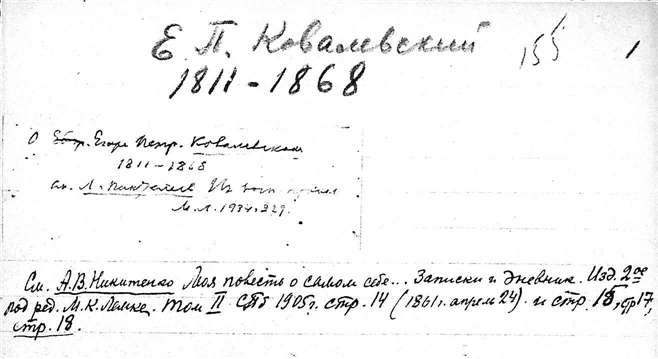 Е. П. Ковалевский
155
1
1811-1868
О Егоре Петр. Ковалевском
1811-1868
см. Л. Пантелеев Из восп. прошл.
М.Л. 1934. 329.
См. А.В. Никитенко Моя повесть о самом себе... Записки и дневник. Изд. 2ое
под ред. М.К. Лемке. Том II СПб 1905г. стр. 14 (1861г. апрель 24). и стр. 15, стр 17,
стр. 18.